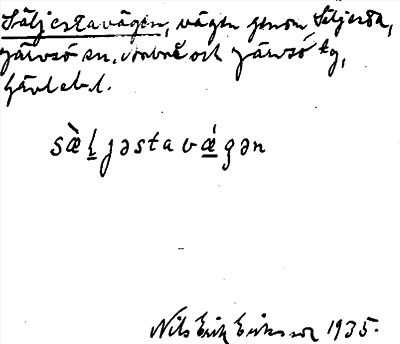 Säljestavägen, vägen genom Säljesta,
Järvsö sn, och Järvsö kg,
Gävleb. l.
sæ̀l̲jəsta vǽ̲gən
Nils Erik Eriksson 1935.